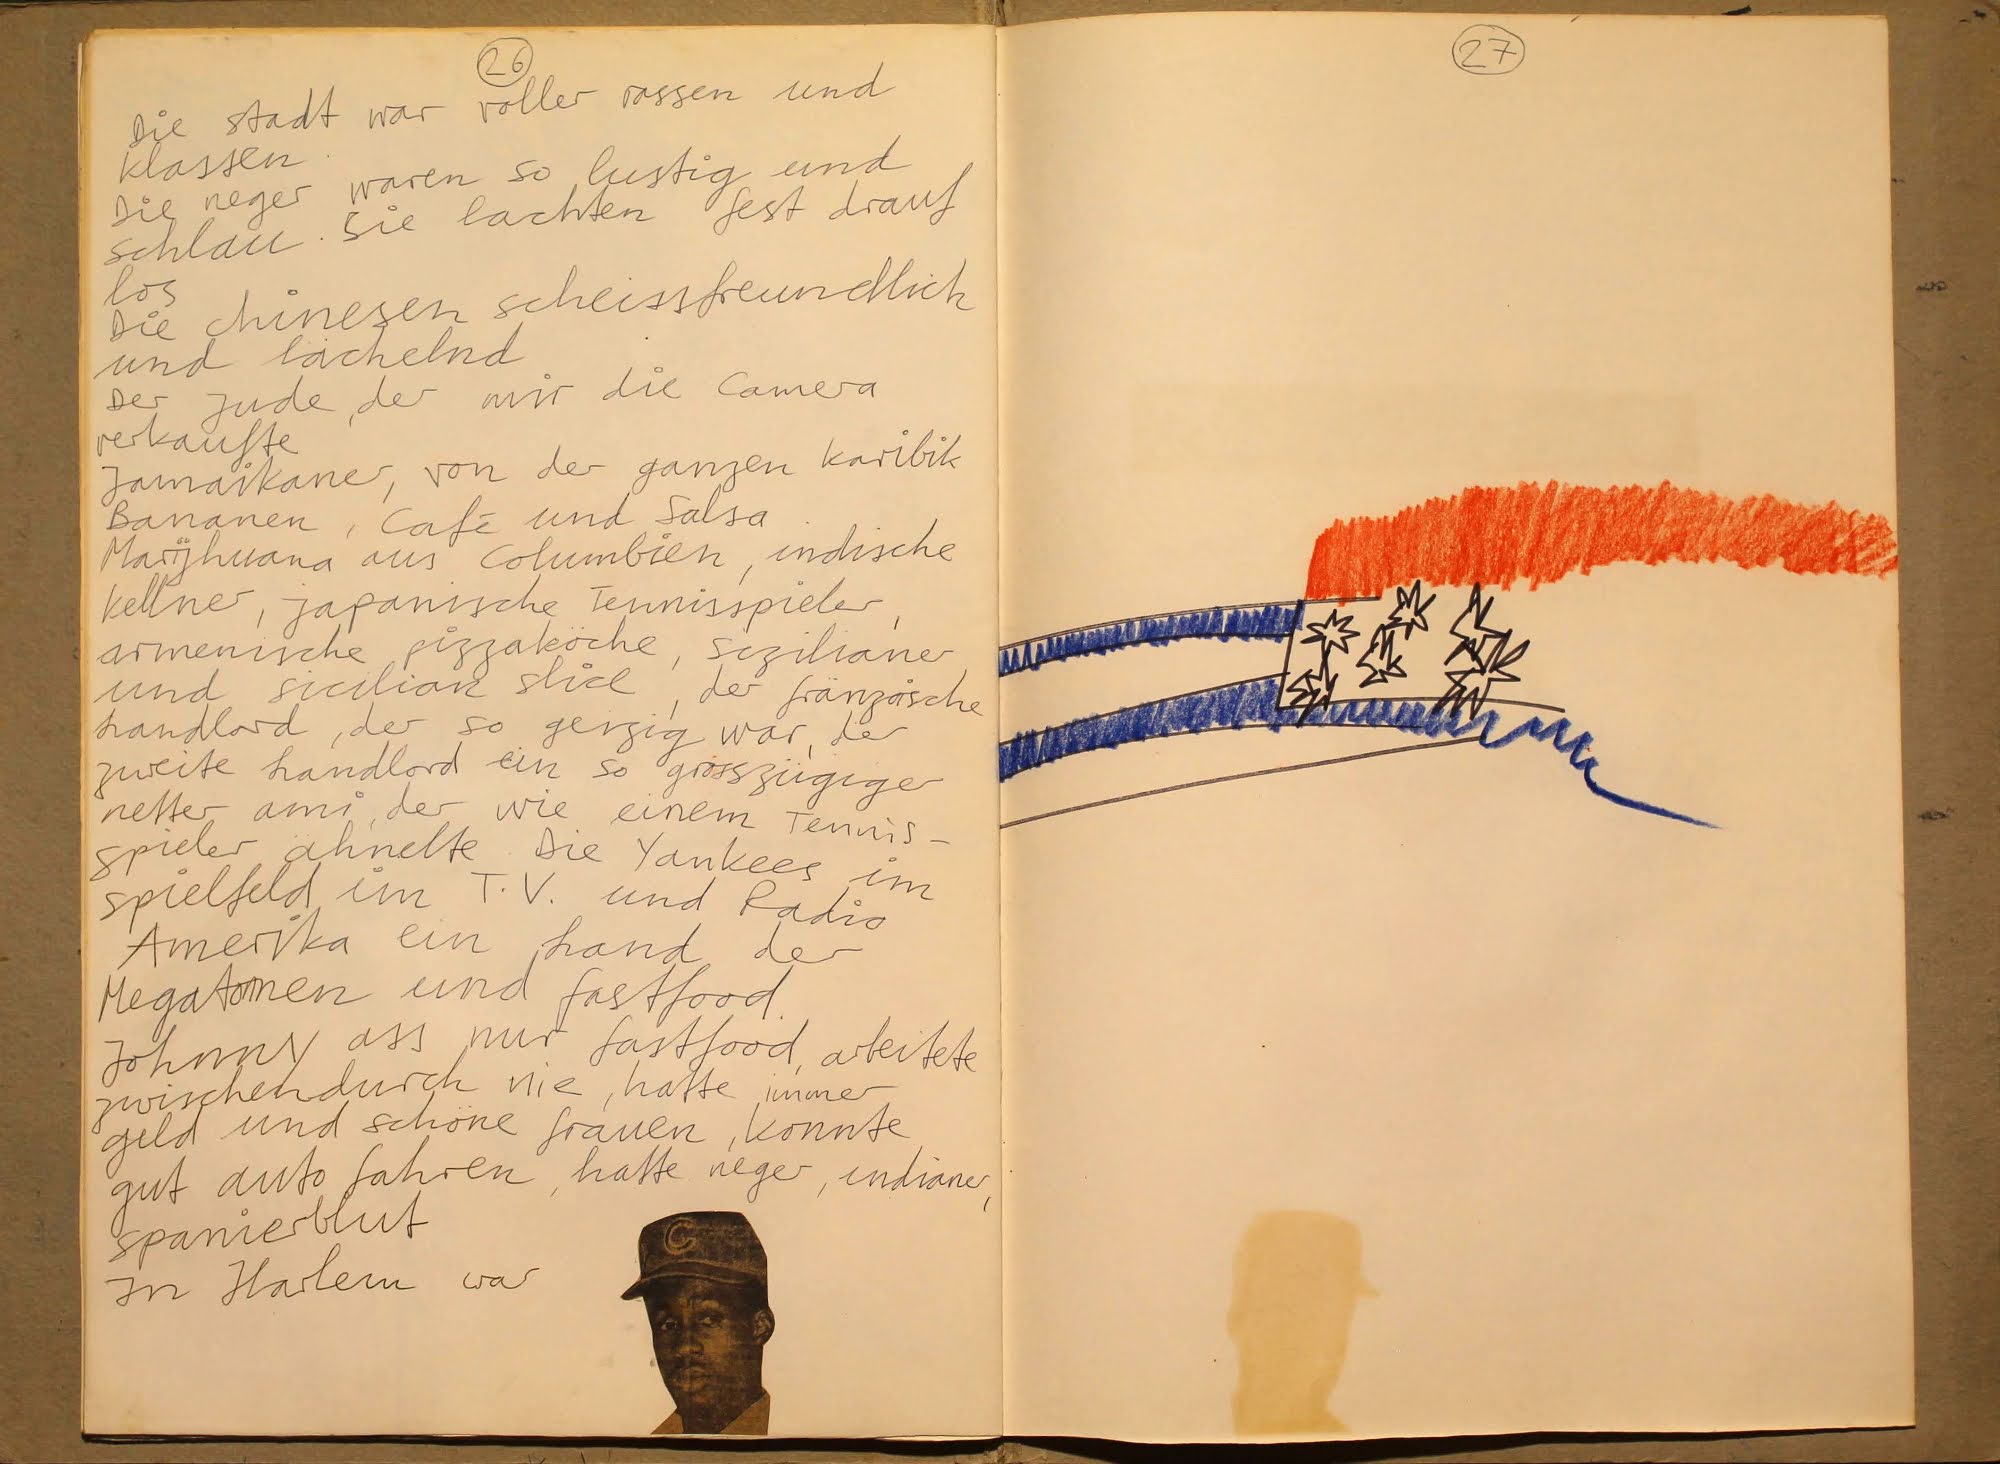 26
Die stadt war voller rassen und
klassen.
Die neger waren so lustig und
schlau. Sie lachten fest drauf
los
Die chinesen scheissfreundlich
und lächelnd
Der Jude, der mir die Camera
verkaufte
Jamaikaner, von der ganzen Karibik
Bananen, Café und Salsa.
Marijhuana aus Columbien, indische
Kellner, japanische Tennisspieler,
armenische pizzaköche, sizilianer
und sicilian slice, der fränzösche
handlord, der so geizig war, der
zweite handlord ein so grosszügiger
netter ami, der wie einem Tennis-
spieler ähnelte. Die Yankees im
spielfeld im T.V. und Radio
Amerika ein hand der
Megatonnen und fastfood.
Johnny ass nur fastfood, arbeitete
zwischendurch nie, hatte immer
geld und schöne frauen, konnte
gut auto fahren, hatte neger, indianer,
spanierblut
In Harlem war
C
27